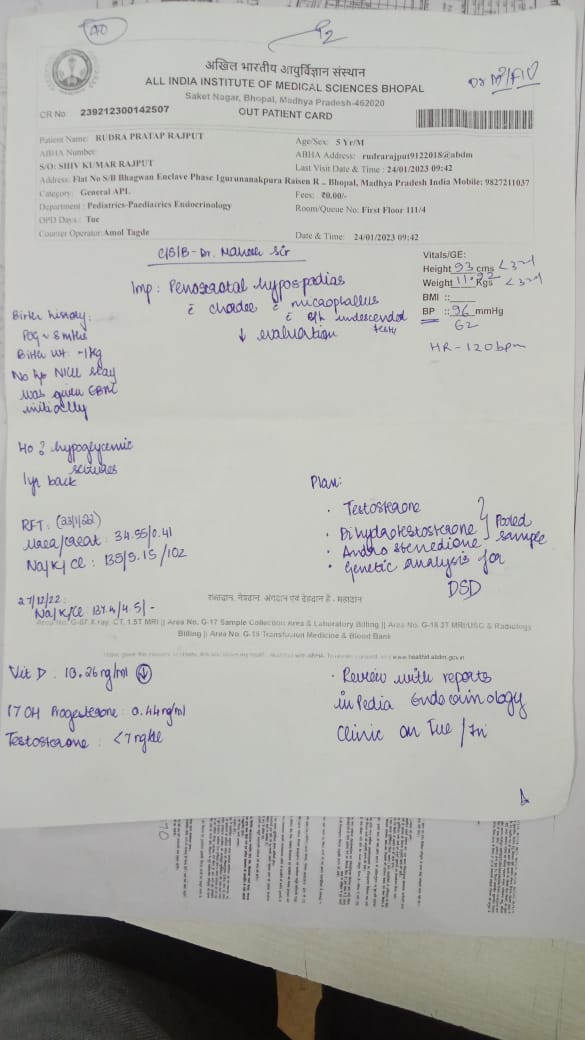 AO
P2
अखिल भारतीय आयुर्विज्ञान संस्थान
ALL INDIA INSTITUTE OF MEDICAL SCIENCES BHOPAL
Saket Nagar, Bhopal, Madhya Pradesh-462020
OUT PATIENT CARD
CR No 239212300142507
Patient Name: RUDRA PRATAP RAJPUT
Age/Sex: 5 Yr/M
ABHA Number
ABHA Address: rudrarajput9122018@abdm
S/O: SHIV KUMAR RAJPUT
Last Visit Date & Time : 24/01/2023 09:42
Address: Flat No S/B Bhagwan Enclave Phase 1gurunanakpura Raisen R .. Bhopal, Madhya Pradesh India Mobile: 9827211037
Category: General APL
Fees: ₹0.00/-
Department : Pediatrics-Paediatrics Endocrinology
Room/Queue No: First Floor 111/4
OPD Days: Tue
Counter Operator: Amol Tagde
Date & Time: 24/01/2023 09:42
C/S/B- Dr. Sir
Vitals/GE:
Height 93 cms <3rd
Weight 11.92 Kgs <3rd
BMI ::
BP :: 96 mmHg
62
HR-120bpm
Imp: Penoscrotal hypospadias
c chordee c micophallus
c undescended testis
↓ evaluation
Birth history:
POG ~ 8 mths
Birth wt. ~1Kg
No h/o NICU stay
was given EBM
initially
H/o ? hypoglycemic
seizures
1yr back
RFT: (23/1/22)
Urea/creat: 34.55/0.41
Na/K/Cl: 135/5.15/102
27/12/22:
Na/K/Cl: 137.4/4.5/-
Plan:
· Testosterone
· Dihydrotestosterone
· Androstenedione
} Pooled sample
· Genetic analysis for
DSD
रक्तदान, नेत्रदान, अंगदान एवं देहदान है - महादान
G-07 X ray, CT, 1.5T MRI || Area No. G-17 Sample Collection Area & Laboratory Billing || Area No. G-18 3T MRI/USG & Radiology
Billing || Area No. G-15 Transfusion Medicine & Blood Bank
Vit D : 10.26 ng/ml ↓
17 OH Progesterone : 0.44ng/ml
Testosterone : <7 ng/dl
· Review with reports
in Pedia Endocrinology
clinic on Tue/Fri